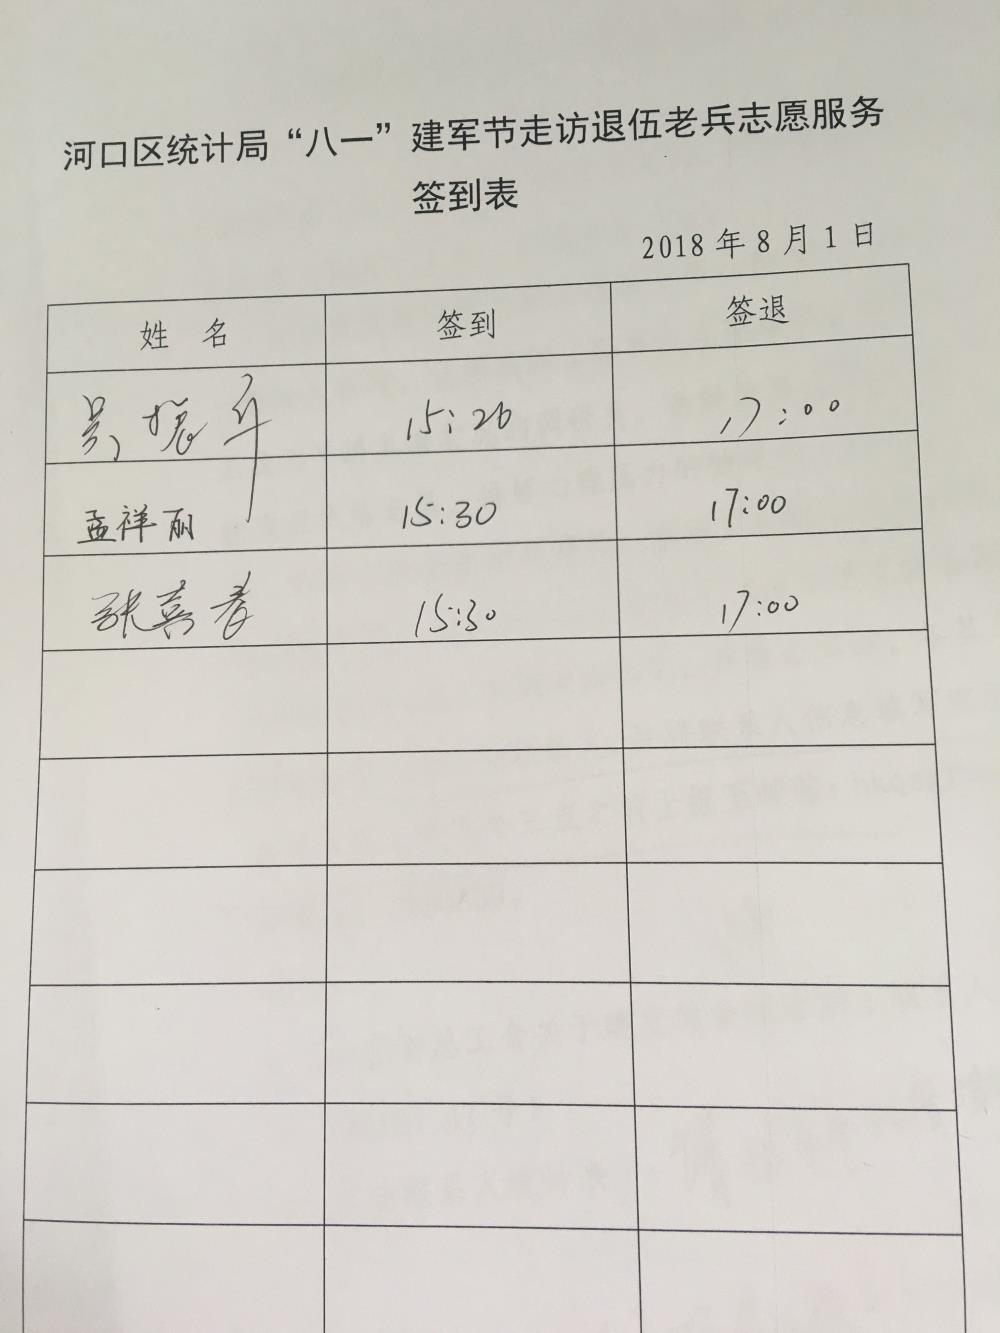 河口区统计局“八一”建军节走访退伍老兵志愿服务
签到表
2018年8月1日
姓 名 签到 签退
吴振 15:26 17:00
孟祥丽 15:30 17:00
张喜春 15:30 17:00